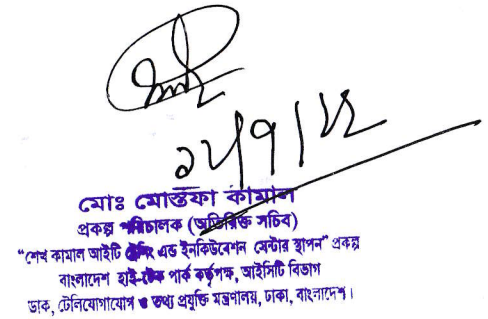 মোঃ মোস্তফা কামাল
প্রকল্প পরিচালক (অতিরিক্ত সচিব)
"শেখ কামাল আইটি ট্রেনিং এন্ড ইনকিউবেশন সেন্টার স্থাপন" প্রকল্প
বাংলাদেশ হাই-টেক পার্ক কর্তৃপক্ষ, আইসিটি বিভাগ
ডাক, টেলিযোগাযোগ ও তথ্য প্রযুক্তি মন্ত্রণালয়, ঢাকা, বাংলাদেশ।